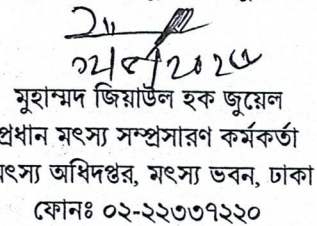 মুহাম্মদ জিয়াউল হক জুয়েল
প্রধান মৎস্য সম্প্রসারণ কর্মকর্তা
মৎস্য অধিদপ্তর, মৎস্য ভবন, ঢাকা
ফোনঃ ০২-২২৩৩৭২২০